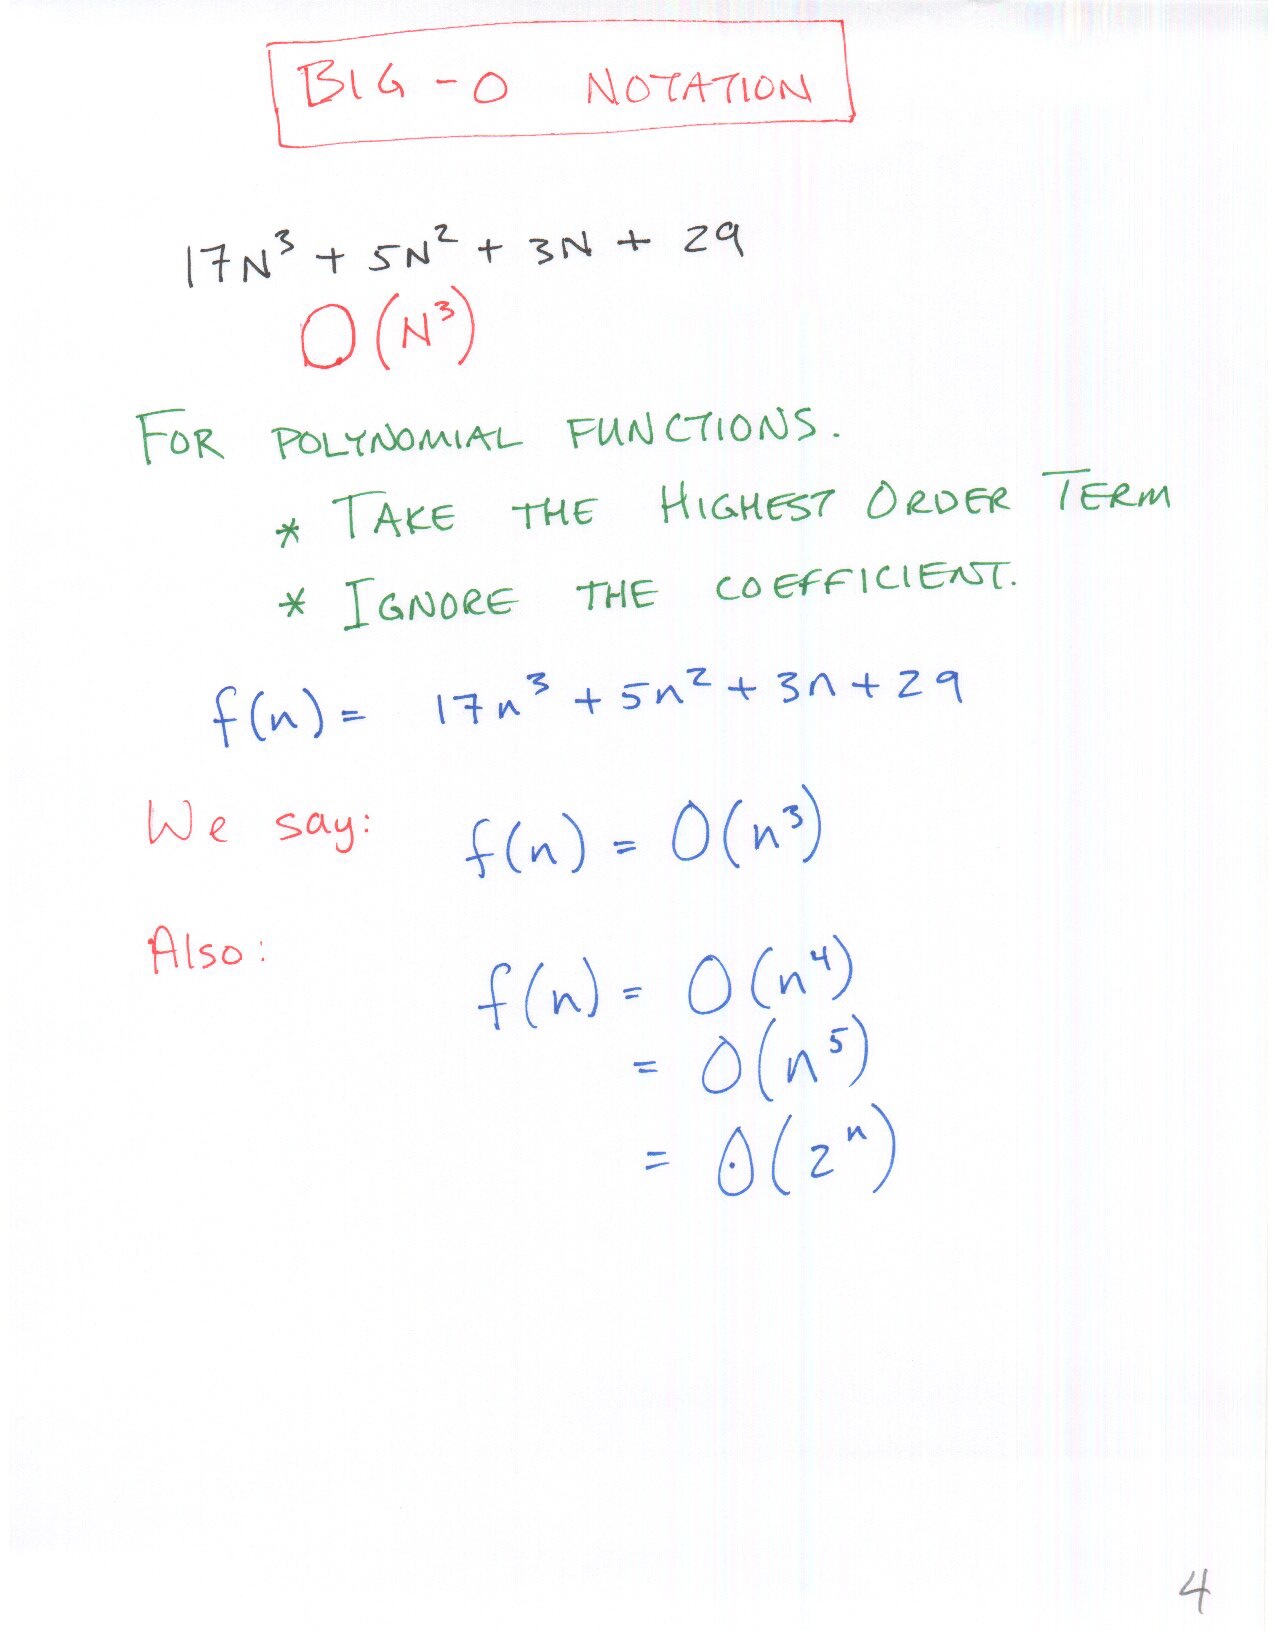 BIG-O NOTATION
17N³ + 5N² + 3N + 29
O(N³)
FOR POLYNOMIAL FUNCTIONS.
* TAKE THE HIGHEST ORDER TERM
* IGNORE THE COEFFICIENT.
f(n) = 17n³ + 5n² + 3n + 29
We say: f(n) = O(n³)
Also:
f(n) = O(n⁴)
= O(n⁵)
= O(2ⁿ)
4